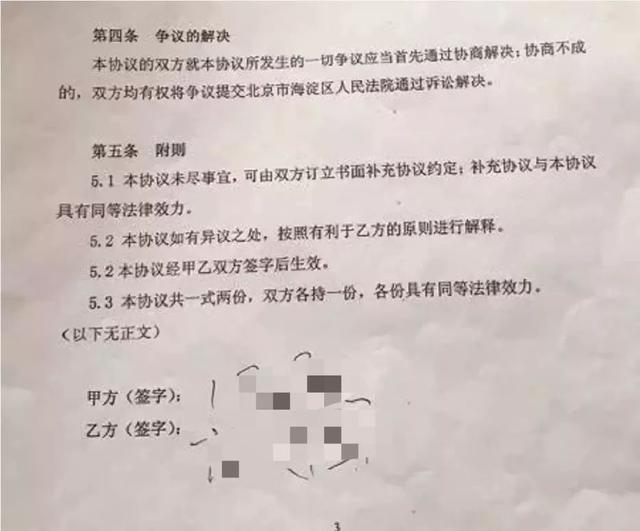 第四条　争议的解决
本协议的双方就本协议所发生的一切争议应当首先通过协商解决；协商不成
的，双方均有权将争议提交北京市海淀区人民法院通过诉讼解决。
第五条　附则
5.1 本协议未尽事宜，可由双方订立书面补充协议约定；补充协议与本协议
具有同等法律效力。
5.2 本协议如有异议之处，按照有利于乙方的原则进行解释。
5.2 本协议经甲乙双方签字后生效。
5.3 本协议共一式两份，双方各持一份，各份具有同等法律效力。
（以下无正文）
甲方（签字）：
乙方（签字）：
3